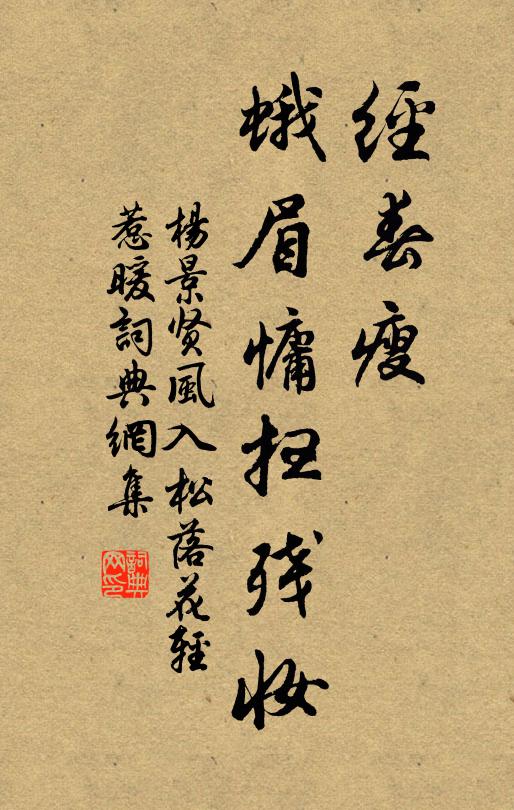 經春瘦
蛾眉慵扫残妆
楊景贤風入松落花輕
惹暖詞典網集
詞典网印